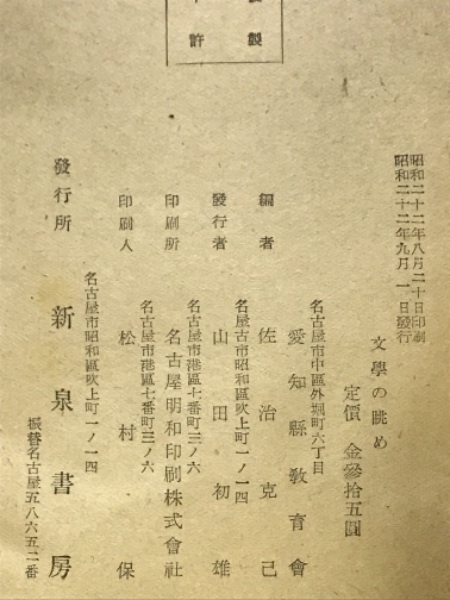 製
許
昭和二十二年八月二十日印刷
昭和二十二年九月一日發行
文學の眺め
定價 金參拾五圓
名古屋市中區外堀町六丁目
愛知縣教育會
編者 佐治克己
名屋古市昭和區吹上町一ノ一四
發行者 山田初雄
名古屋市港區七番町三ノ六
印刷所 名古屋明和印刷株式會社
名古屋市港區七番町三ノ六
印刷人 松村保
名古屋市昭和區吹上町一ノ一四
發行所 新泉書房
振替名古屋五八六五二番